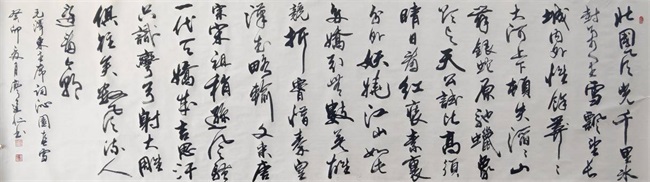 北国风光千里冰
封万里雪飘望长
城内外惟余莽々
大河上下顿失滔々山
舞银蛇原驰蜡象
欲与天公试比高须
晴日看红装素裹
分外妖娆江山如此
多娇引无数英雄
竞折腰惜秦皇
汉武略输文采唐
宋宗祖稍逊风骚
一代天骄成吉思汗
只识弯弓射大雕
俱往矣数风流人
还看今朝
毛泽东主席词沁园春雪
癸卯